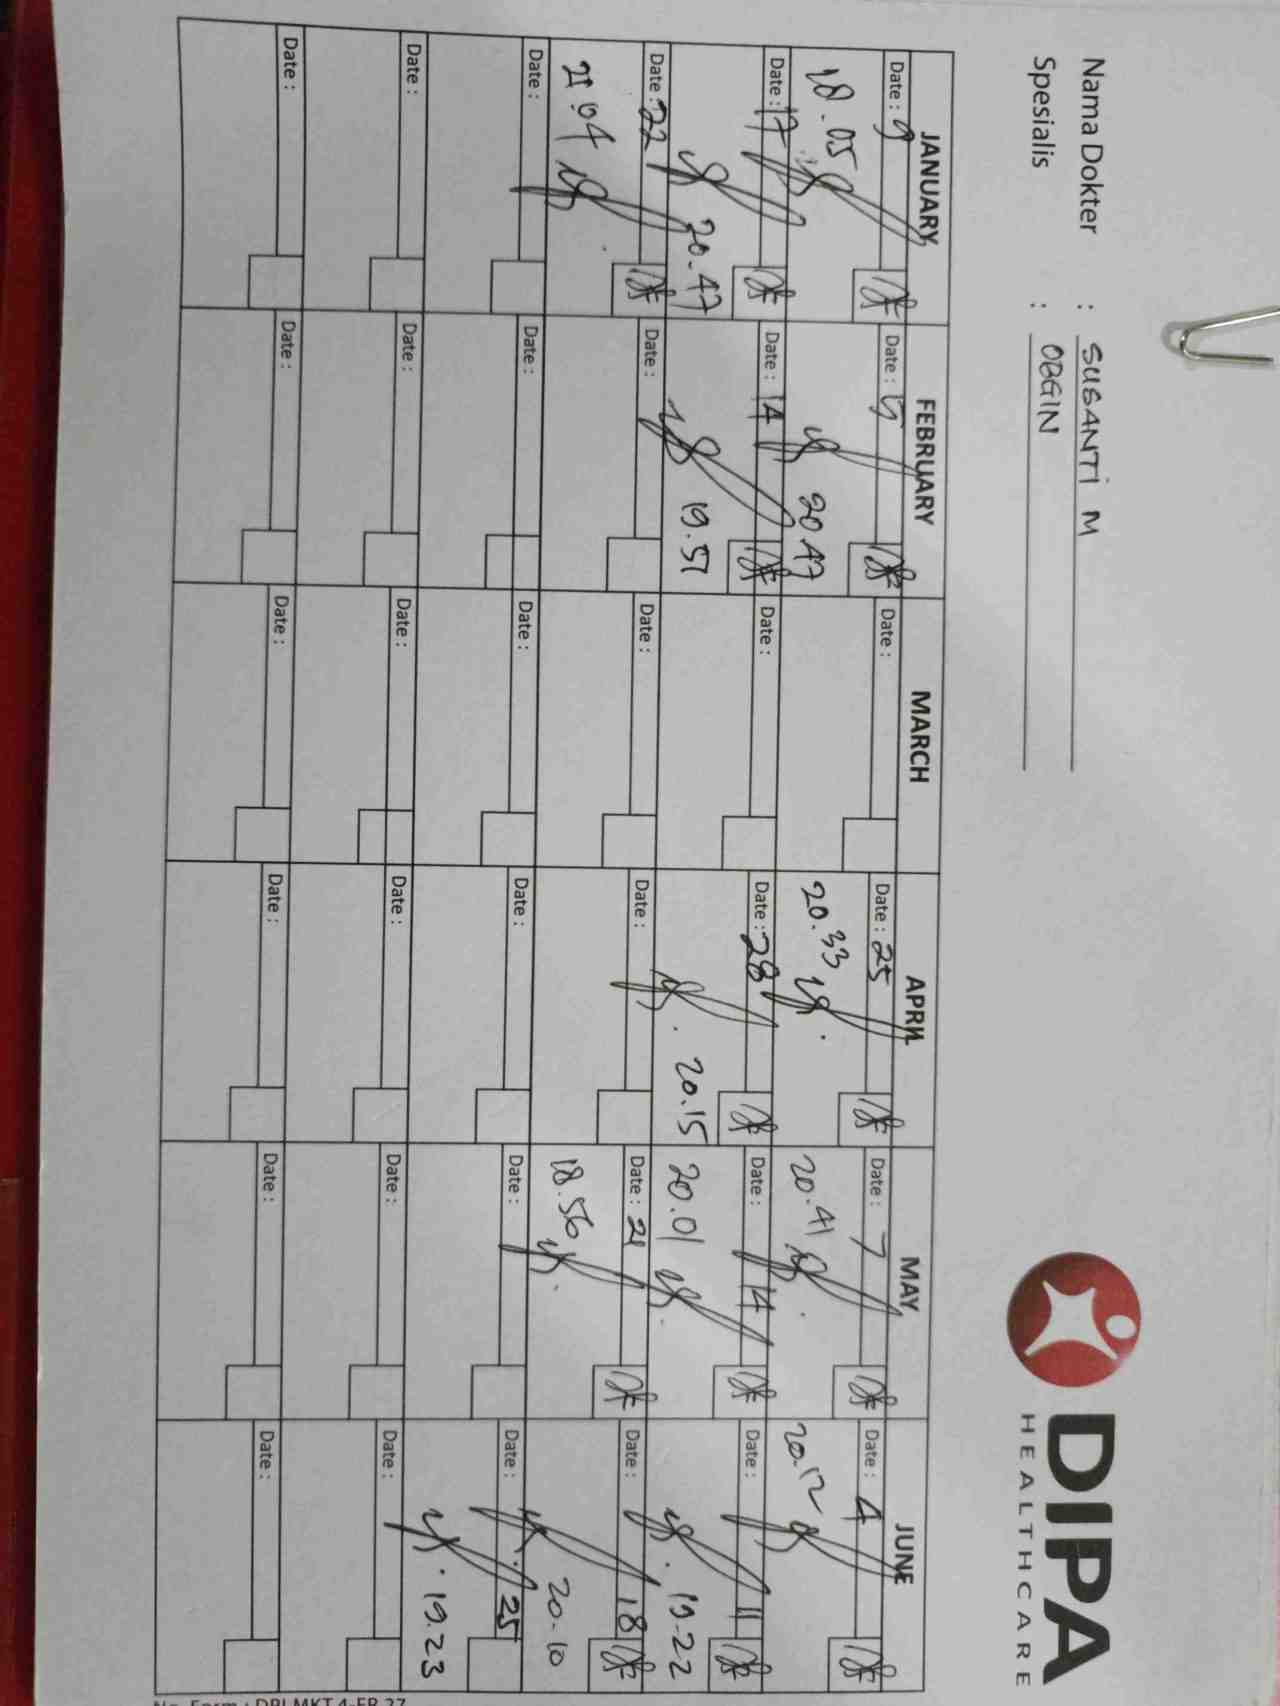 DIPA
HEALTHCARE
Nama Dokter : SUSANTI M
Spesialis : OBGIN
JANUARY FEBRUARY MARCH APRIL MAY JUNE
Date : 9 Date : 5 Date : Date : 25 Date : 7 Date : 4
18.05 20.47 20.33 20.41 20.12
Date : 17 Date : 14 Date : Date : 28 Date : 14 Date : 11
20.47 19.57 20.15 20.01 19.22
Date : 22 Date : Date : Date : Date : 21 Date : 18
21.04 18.56 20.10
Date : Date : Date : Date : Date : Date : 25
19.23
Date : Date : Date : Date : Date : Date :
Date : Date : Date : Date : Date : Date :